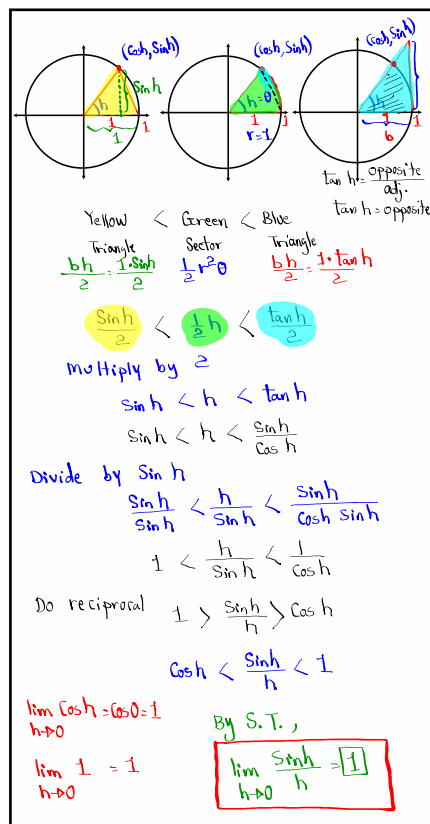 (cosh, Sinh) (cosh, Sinh) (cosh, Sinh)
h Sinh 1 1 1
h=θ 1 1 r=1
h 1 1 b
tan h = opposite/adj.
tan h = opposite
Yellow < Green < Blue
Triangle Sector Triangle
bh/2 = 1·Sinh/2 1/2 r²θ bh/2 = 1·tanh/2
Sinh/2 < 1/2 h < tanh/2
Multiply by 2
Sinh < h < tanh
Sinh < h < Sinh/Cosh
Divide by Sin h
Sinh/Sinh < h/Sinh < Sinh/Cosh Sinh
1 < h/Sinh < 1/Cosh
Do reciprocal 1 > Sinh/h > Cosh
Cosh < Sinh/h < 1
lim h→0 Cosh = Cos0 = 1
By S.T.,
lim h→0 1 = 1
lim h→0 Sinh/h = 1